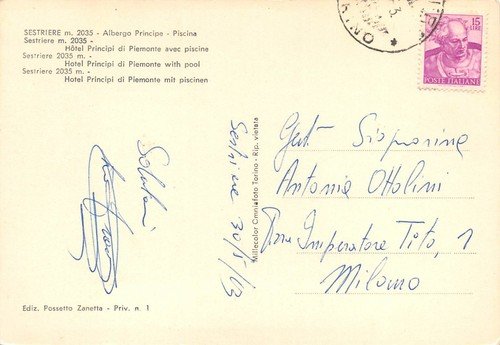 SESTRIERE m. 2035 - Albergo Principe - Piscina
Sestriere m. 2035 -
Hôtel Principi di Piemonte avec piscine
Sestriere 2035 m. -
Hotel Principi di Piemonte with pool
Sestriere 2035 m. -
Hotel Principi di Piemonte mit piscinen
15
LIRE
POSTE ITALIANE
Saluti
Sestriere 30/8/63
Millecolor Omniafoto Torino - Rip. vietata
Gent. Signorina
Antonia Ottolini
Imperatore Tito, 1
Milano
Ediz. Possetto Zanetta - Priv. n. 1